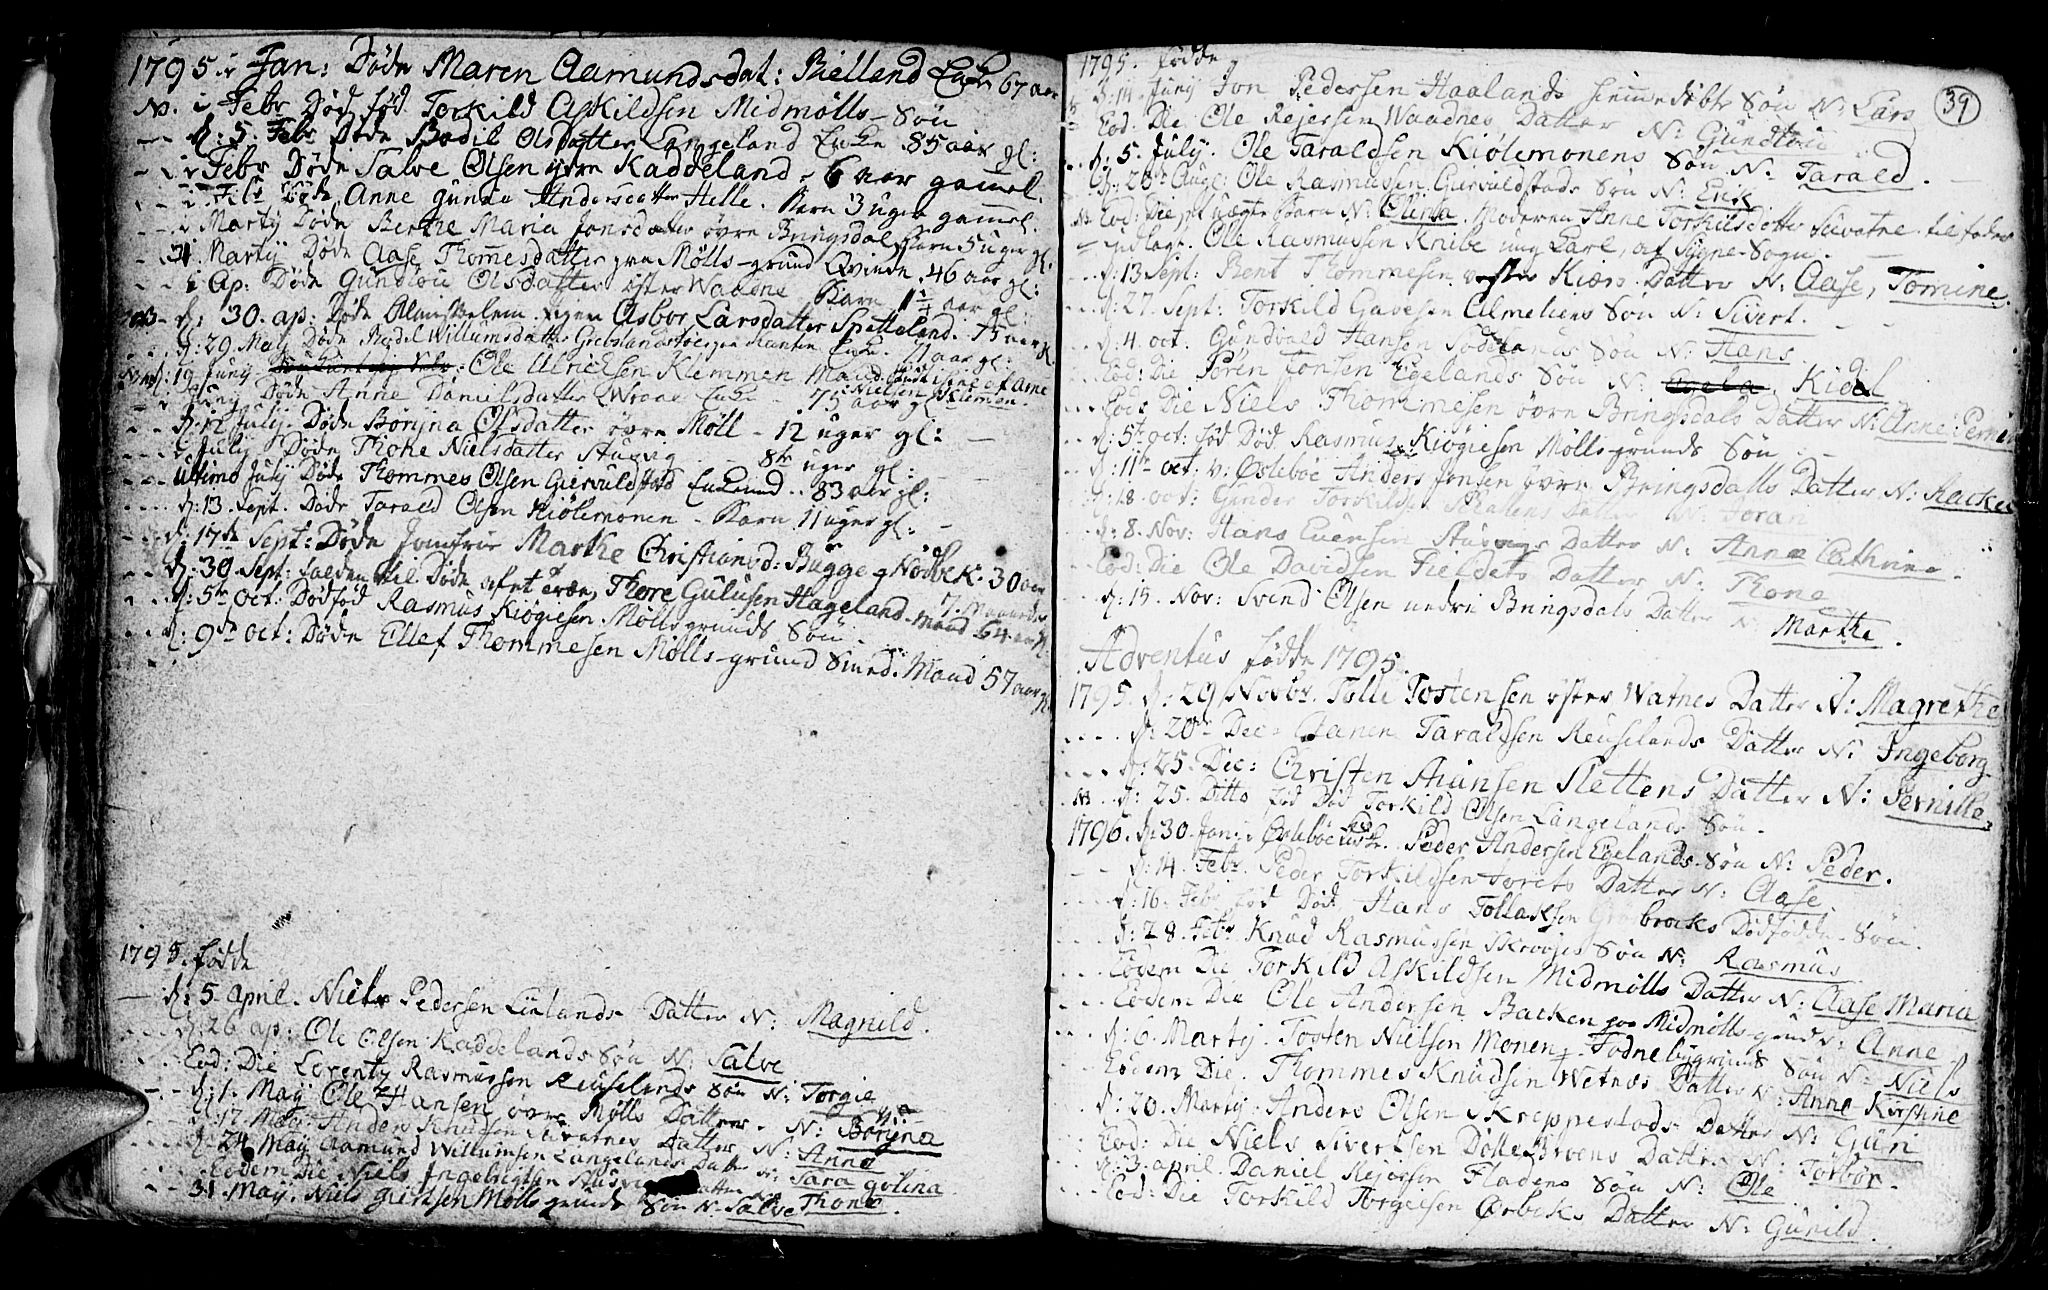 1795. i Jan: Døde Maren Aamundsdat: Bielland Enke 67 aar
N. i Febr Død fød Torkild Askildsen Midmølls Søn
d: 5. Febr Døde Bodil Olsdatter Langeland Enke 85 aar gl:
i Febr Døde Salve Olsen øvre Kaddeland - 6 aar gamel.
i Febr Døde Anne Gunde Andersdatter Helle. Barn 3 uger gamel.
i Marty Døde Berthe Maria Jonsdatter øvre Bringsdal Barn 5 uger gl:
31 Marty Døde Aase Thommesdatter Mølls-grund Qvinde. 46 aar gl:
i Ap: Døde Gundlou Olsdatter øster Waadne Barn 1 1/4 aar gl:
d: 30. ap: Døde Asbor Larsdatter Spetteland. 75 aar gl
d: 29 May Døde Willumsdatter Enke. 71 aar gl:
d: 19 Juny Ole Ulricksen Klemmen Mand
i Juny Døde Anne Danielsdatter Wraae Enke - 75 aar gl
d: 12 July. Døde Borgna Olsdatter øvre Møll - 12 uger gl:
i July Døde Thone Nielsdatter Ausvig - 8te uger gl:
Ultimo July Døde Thommes Olsen Giervuldstad Enkemd .. 83 aar gl:
d: 13. Sept. Døde Tarald Olsen Kiølemonen - Barn 11 uger gl:
d: 17de Sept: Døde Jomfrue Marthe Christiansd: Bugge Nodbek. 30 aar 7. Maaneder
d: 30 Sept: falden til Døde Thore Gulusen Hageland. mand 64 aar gl.
d: 5te Oct: Dødfød Rasmus Kiøgiesen Mølls grunds Søn.
d: 9de Oct: Døde Ellef Thommesen Mølls-grund Smed. Mand 57 aar gl
1795. fødde
d: 5. april. Niels Pedersen Lunlands Datter N: Magnild.
d: 26 ap: Ole Olsen Kaddelands Søn N: Salve
Eod: Die Lorents Rasmussen Reuselands Søn N: Torgie
d: 1. May Ole Hansen øvre Mølls Datter. N: Borgna
17. May Anders Knudsen Datter N: Anna
d: 24 May Aamund Willumsen Langelands Datter N: Sara golina
Eodem Die Niels Ingebrigtsen Ausvigs Datter N: Thone
31. May. Niels Giensen Mølls grunds Søn N: Salve
39
1795. fødde
d: 14. Juny Jon Pedersen Haalands hiemmedøbte Søn N: Lars
Eod: Die Ole Rejersen Waadnes Datter N: Gundlou
d: 5 July. Ole Taraldsen Kiølemonens Søn N: Tarald.
d: 20de Aug: Ole Rasmussen Giervuldstads Søn N: Erik
N Eod: Die et uægte Barn N: Olina. Moderen Anne Torkilsdatter til fader
udlagt. Ole Rasmussen Knibe ung Karl, af Søgne-Sogn.
d: 13 Sept: Bent Thommesen vester Kiærs Datter N: Aase, Tomine.
d: 27. Sept: Torkild Gavesen Almeliens Søn N: Sivert.
d: 4. oct. Gundvald Hansen Søn N: Hans
Eod: Die Søren Jonsen Egelands Søn N: Kidel
Eod: Die Niels Thommesen øvre Bringsdals Datter N: Anne Perni
d: 5te oct: fød Død Rasmus Kiøgiesen Mølls grunds Søn
d: 11te oct. v: Østeboe Anders Jonsen øvre Bringsdalls Datter N: Rackel
d: 18. oct: Gunder Torkildsen Datter N: Joran
d: 8. Nov: Hans Evensen Datter N: Anna Cathrina.
Eod: Die Ole Davidsen Fieldets Datter N: Thone
d: 15. Nov: Svend Olsen nedre Bringsdals Datter N: Marthe.
Adventus fødde 1795.
1795. d: 29 Novbr. Tolle Tostensen øster Watnes Datter N: Magrethe
d: 20de Dec: Janen Taraldsen Reuselands Datter N: Ingeborg
d: 25. Dec: Christen Aiansen Slettens Datter N: Pernille.
N d: 25. Ditto fød Død Torkild Olsen Langelands Søn.
1796. d: 30. Jan: Østeboe kirke. Peder Andersen Egelands Søn N: Peder.
d: 14. Febr. Peder Torkildsen Torets Datter N: Aase
d: 16. Febr fød Død Hans Tollaksen Grosbroeks Dødfødde Søn.
d: 28. Febr Knud Rasmussen Skraajes Søn N: Rasmus
Eodem Die Torkild Askildsen Midmølls Datter N: Aase Maria
Eodem Die Ole Andersen Backen Midmølls-grund: Anne
d: 6. Marty. Tosten Nielsen Monen, Fodnebugrunds Søn N: Niels
Eodem Die Thommes Knudsen Wetnes Datter N: Anne Kirstine
d: 20. Marty: Anders Olsen Skreppestads Datter N: Guri
Eod: Die Niels Sivertsen DolleBroens Datter N: Torbor.
d: 3. april. Daniel Rejersen Fladens Søn N: Ole
Eod: Die Torkild Torgeisen Ørboks Datter N: Gunild.